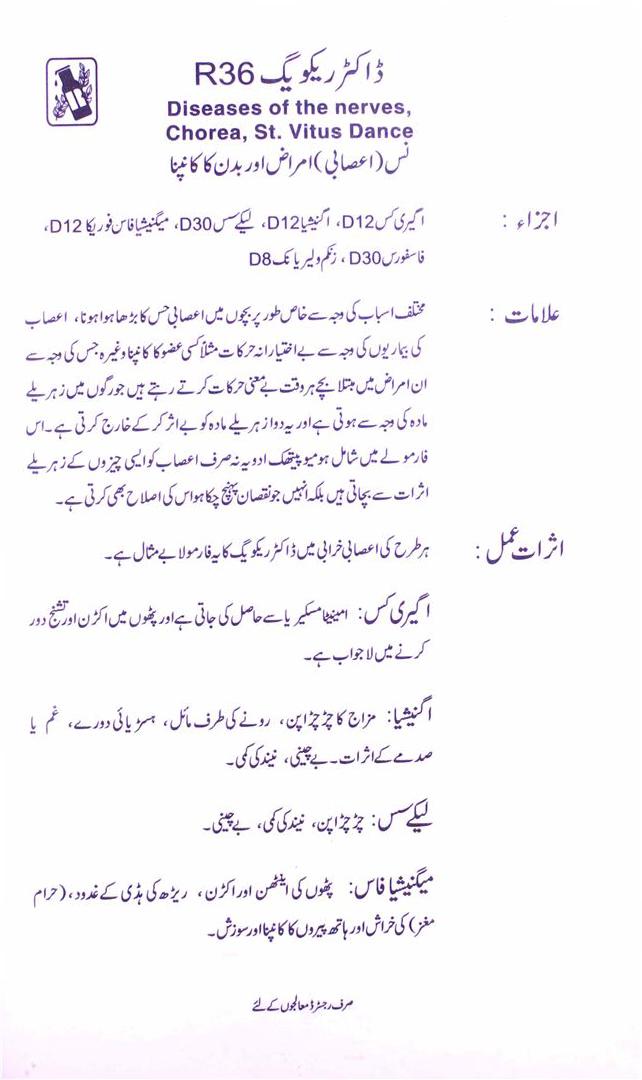 ڈاکٹر ریکویگ R36
Diseases of the nerves,
Chorea, St. Vitus Dance
نس (اعصابی) امراض اور بدن کا کانپنا
اجزاء : اگیری کس D12، اگنیشیا D12، لیکے سس D30، میگنیشیا فاس فوریکا D12،
فاسفورس D30، زنکم ولیریانک D8
علامات : مختلف اسباب کی وجہ سے خاص طور پر بچوں میں اعصابی حس کا بڑھا ہوا ہونا، اعصاب
کی بیماریوں کی وجہ سے بے اختیارانہ حرکات مثلاً کسی عضو کا کانپنا وغیرہ جس کی وجہ سے
ان امراض میں مبتلا بچے ہر وقت بے معنی حرکات کرتے رہتے ہیں جو رگوں میں زہریلے
مادہ کی وجہ سے ہوتی ہے اور یہ دوا زہریلے مادہ کو بے اثر کر کے خارج کرتی ہے۔ اس
فارمولے میں شامل ہومیوپیتھک ادویہ نہ صرف اعصاب کو ایسی چیزوں کے زہریلے
اثرات سے بچاتی ہیں بلکہ انہیں جو نقصان پہنچ چکا ہو اس کی اصلاح بھی کرتی ہے۔
اثرات عمل : ہر طرح کی اعصابی خرابی میں ڈاکٹر ریکویگ کا یہ فارمولا بے مثال ہے۔
اگیری کس: امینیٹا مسکیریا سے حاصل کی جاتی ہے اور پٹھوں میں اکڑن اور تشنج دور
کرنے میں لاجواب ہے۔
اگنیشیا: مزاج کا چڑچڑاپن، رونے کی طرف مائل، ہسٹریائی دورے، غم یا
صدمے کے اثرات۔ بے چینی، نیند کی کمی۔
لیکے سس: چڑچڑاپن، نیند کی کمی، بے چینی۔
میگنیشیا فاس: پٹھوں کی اینٹھن اور اکڑن، ریڑھ کی ہڈی کے غدود، (حرام
مغز) کی خراش اور ہاتھ پیروں کا کانپنا اور سوزش۔
صرف رجسٹرڈ معالجوں کے لئے